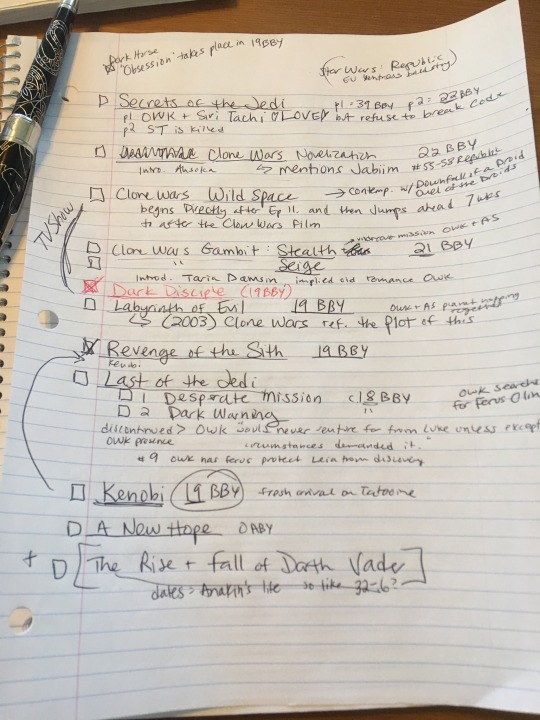 Dark Horse
"Obsession" takes place in 19BBY
(Star Wars: Republic
EU
Secrets of the Jedi p1 = 39 BBY p2 = 22 BBY
p1 OWK + Siri Tachi LOVE but refuse to break Code
p2 ST is killed
Clone Wars Novelization 22 BBY
Intro. Ahsoka ↳ mentions Jabiim #55-58 Republic
Clone Wars Wild Space → contemp. w/ Downfall of a Droid
Duel of the Droids
begins Directly after Ep II. and then Jumps ahead 7 wks
to after the Clone Wars Film
TV Show
mission OWK + AS
Clone Wars Gambit: Stealth 21 BBY
" Seige
Introd. Taria Damsin implied old romance OWK
Dark Disciple (19BBY)
Labyrinth of Evil 19 BBY OWK + AS planet hopping
↳ (2003) Clone Wars ref. the plot of this
Revenge of the Sith 19 BBY
Kenobi
Last of the Jedi
1 Desperate mission c18 BBY OWK searches
for Ferus Olin
2 Dark Warning "
discontinued > OWK would never venture far from Luke unless except
OWK presence circumstances demanded it.
#9 OWK has ferus protect Leia from discovery
Kenobi 19 BBY fresh arrival on Tatooine
A New Hope 0ABY
+ [The Rise + Fall of Darth Vader]
dates = Anakin's life so like 32-6?